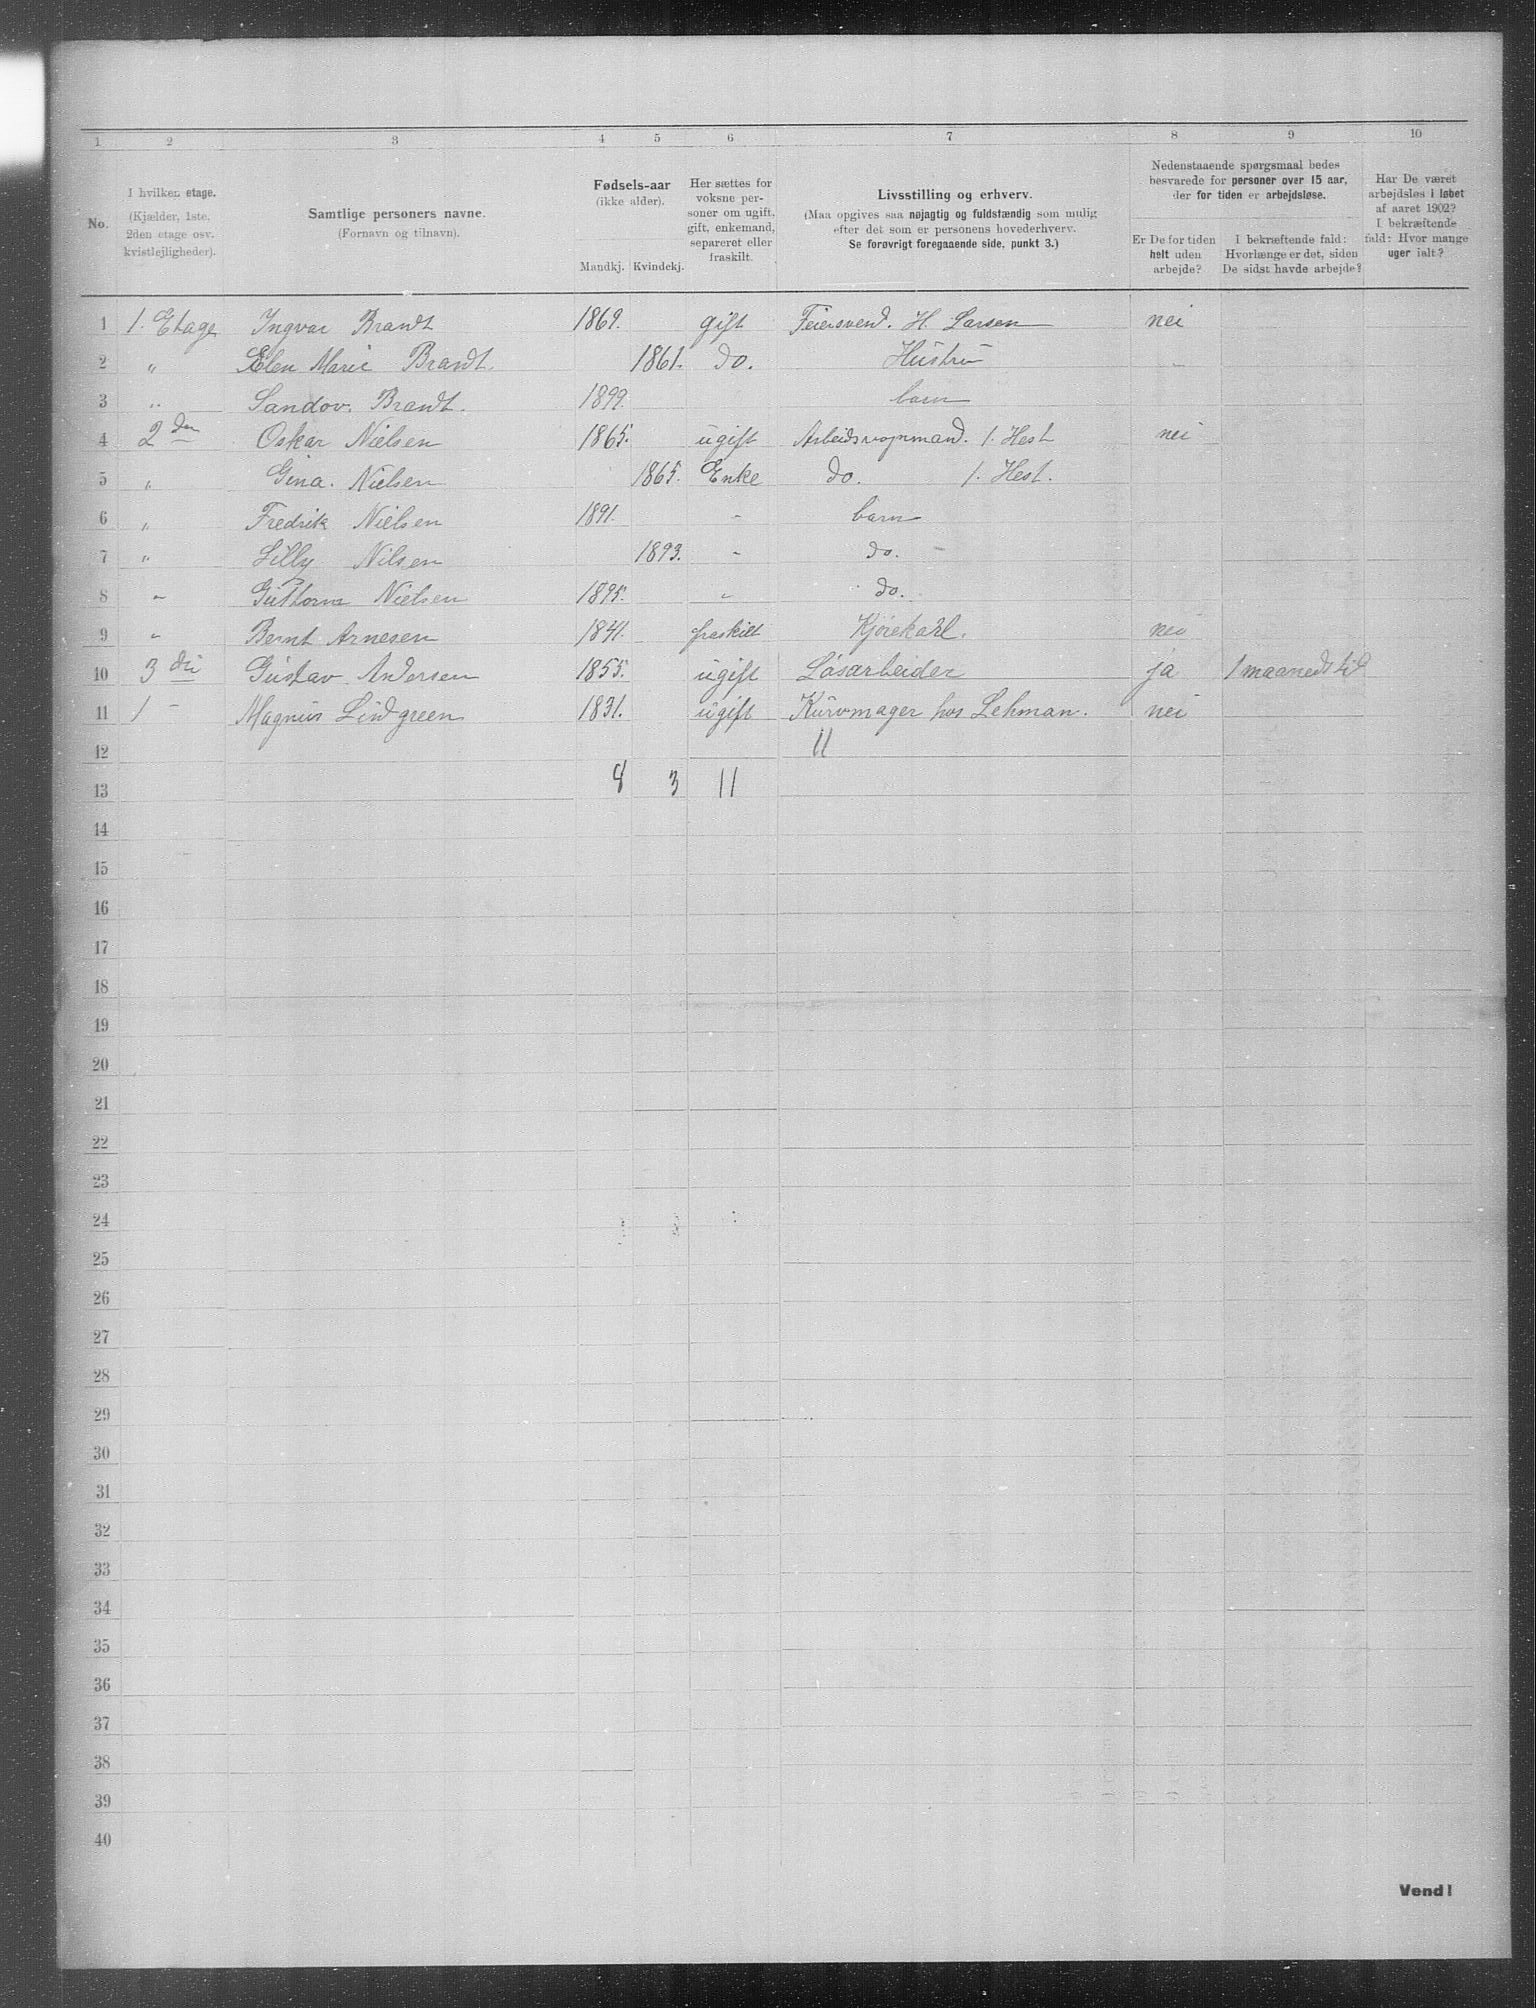 1 2 3 4 5 6 7 8 9 10
No.
I hvilken etage.
(Kjælder, 1ste.
2den etage osv.
kvistlejligheder).
Samtlige personers navne.
(Fornavn og tilnavn).
Fødsels-aar
(ikke alder).
Mandkj. Kvindekj.
Her sættes for
voksne per-
soner om ugift,
gift, enkemand,
separeret eller
fraskilt.
Livsstilling og erhverv.
(Maa opgives saa nøjagtig og fuldstændig som mulig
efter det som er personens hovederhverv.
Se forøvrigt foregaaende side, punkt 3.)
Nedenstaaende spørgsmaal bedes
besvarede for personer over 15 aar,
der for tiden er arbejdsløse.
Er De for tiden
helt uden
arbejde?
I bekræftende fald:
Hvorlænge er det, siden
De sidst havde arbejde?
Har De været
arbejdsløs i løbet
af aaret 1902?
I bekræftende
fald: Hvor mange
uger ialt?
1 1. Etage Ingvar Brandt 1869. gift Feiersvend. H. Larsen nei
2 " Elen Marie Brandt. 1861. do. Hustru
3 " Sandov. Brandt. 1899. barn
4 2den Oskar Nielsen 1865. ugift Arbeidsvognmand. 1. Hest nei
5 " Gina. Nielsen 1865. Enke do. 1. Hest.
6 " Fredrik Nielsen 1891. - barn
7 " Lilly Nilsen 1893. - do. -
8 " Guttorm Nielsen 1895. " do.
9 " Bernt Arnesen 1841. fraskilt Kjørekarl. nei
10 3die Gustav Andersen 1855. ugift Løsarbeider ja 1 maaneds tid
11 1 - Magnus Lindgreen 1831. ugift Kurvmager hos Lehman. nei
12 11
13 8 3 11
14
15
16
17
18
19
20
21
22
23
24
25
26
27
28
29
30
31
32
33
34
35
36
37
38
39
40
Vend!